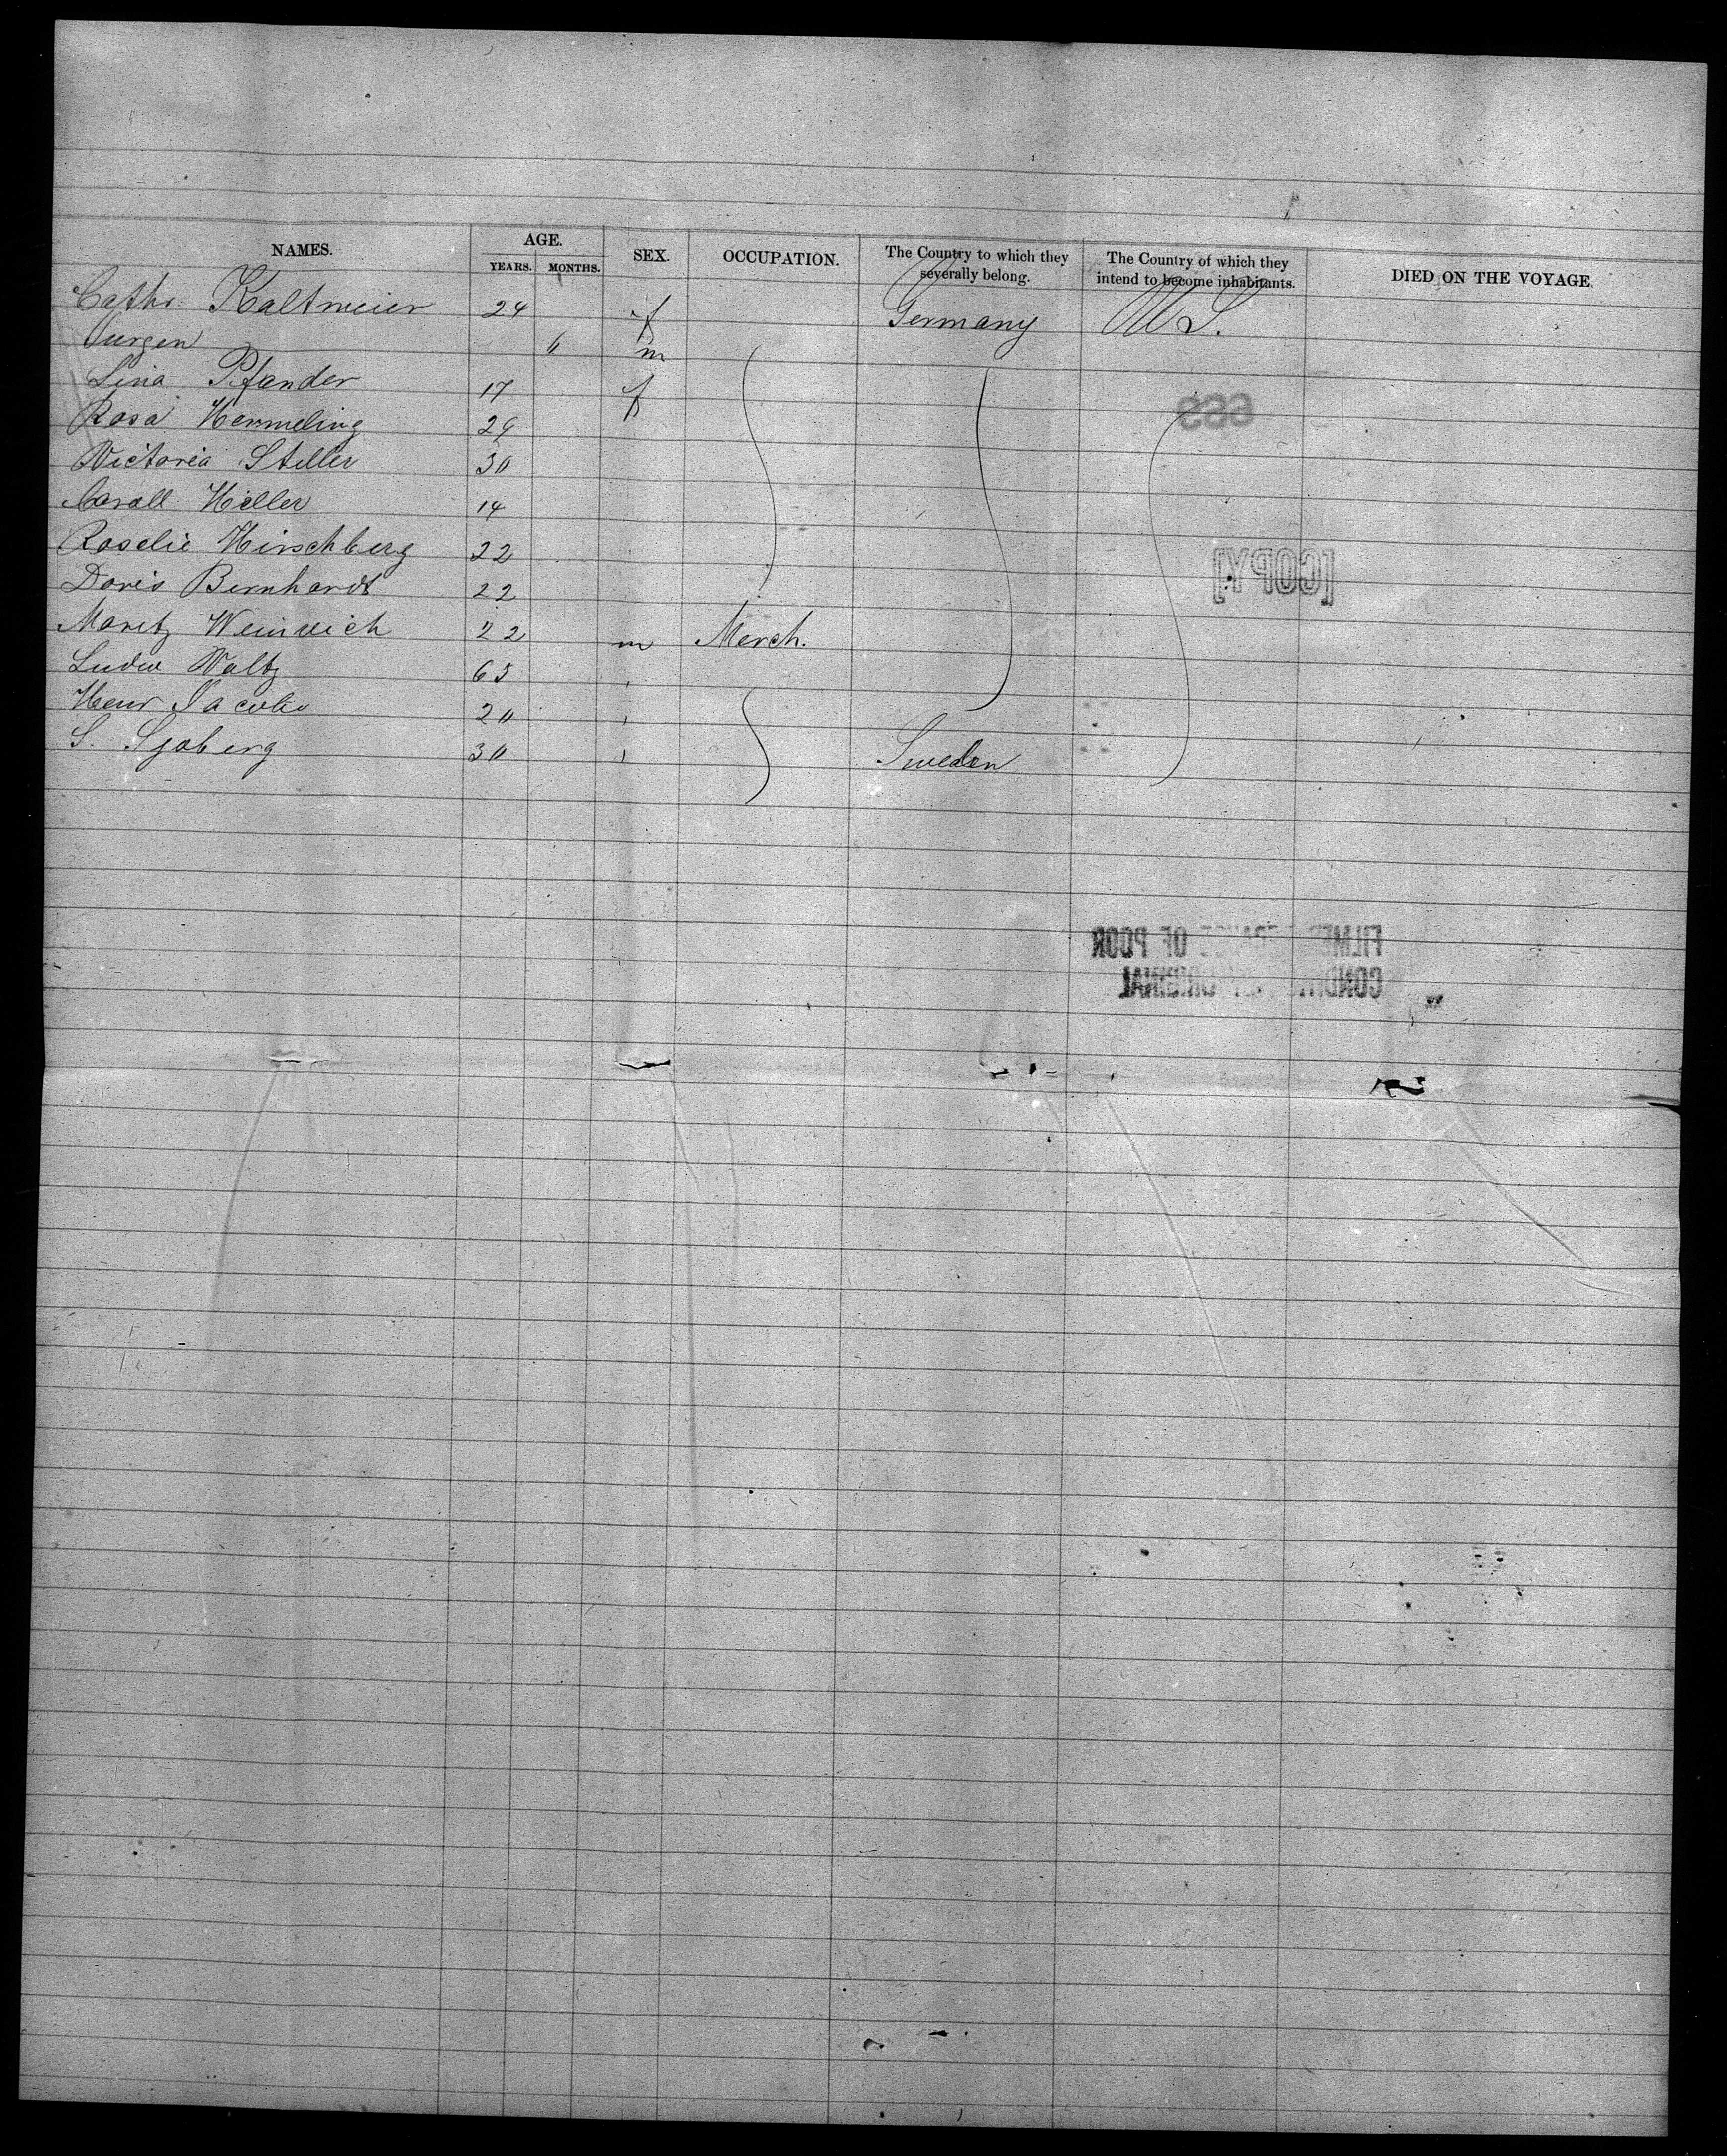 NAMES. AGE. SEX. OCCUPATION. The Country to which they severally belong. The Country of which they intend to become inhabitants. DIED ON THE VOYAGE.
YEARS. MONTHS.
Cathr. Kaltmeier 24 f Germany U.S.
Jurgen m
Lina Pfander 17 f
Rosa Hemmeling 29
Victoria Stiller 30
Hiller 14
Roselie Hirschberg 22
Doris Bernhardt 22
Moritz Weinreich 22 m Merch.
Ludw Waltz 65
Henr Jacobi 20
S. Sjoberg 30 Sweden
[COPY]
FILMED BECAUSE OF POOR
CONDITION OF ORIGINAL